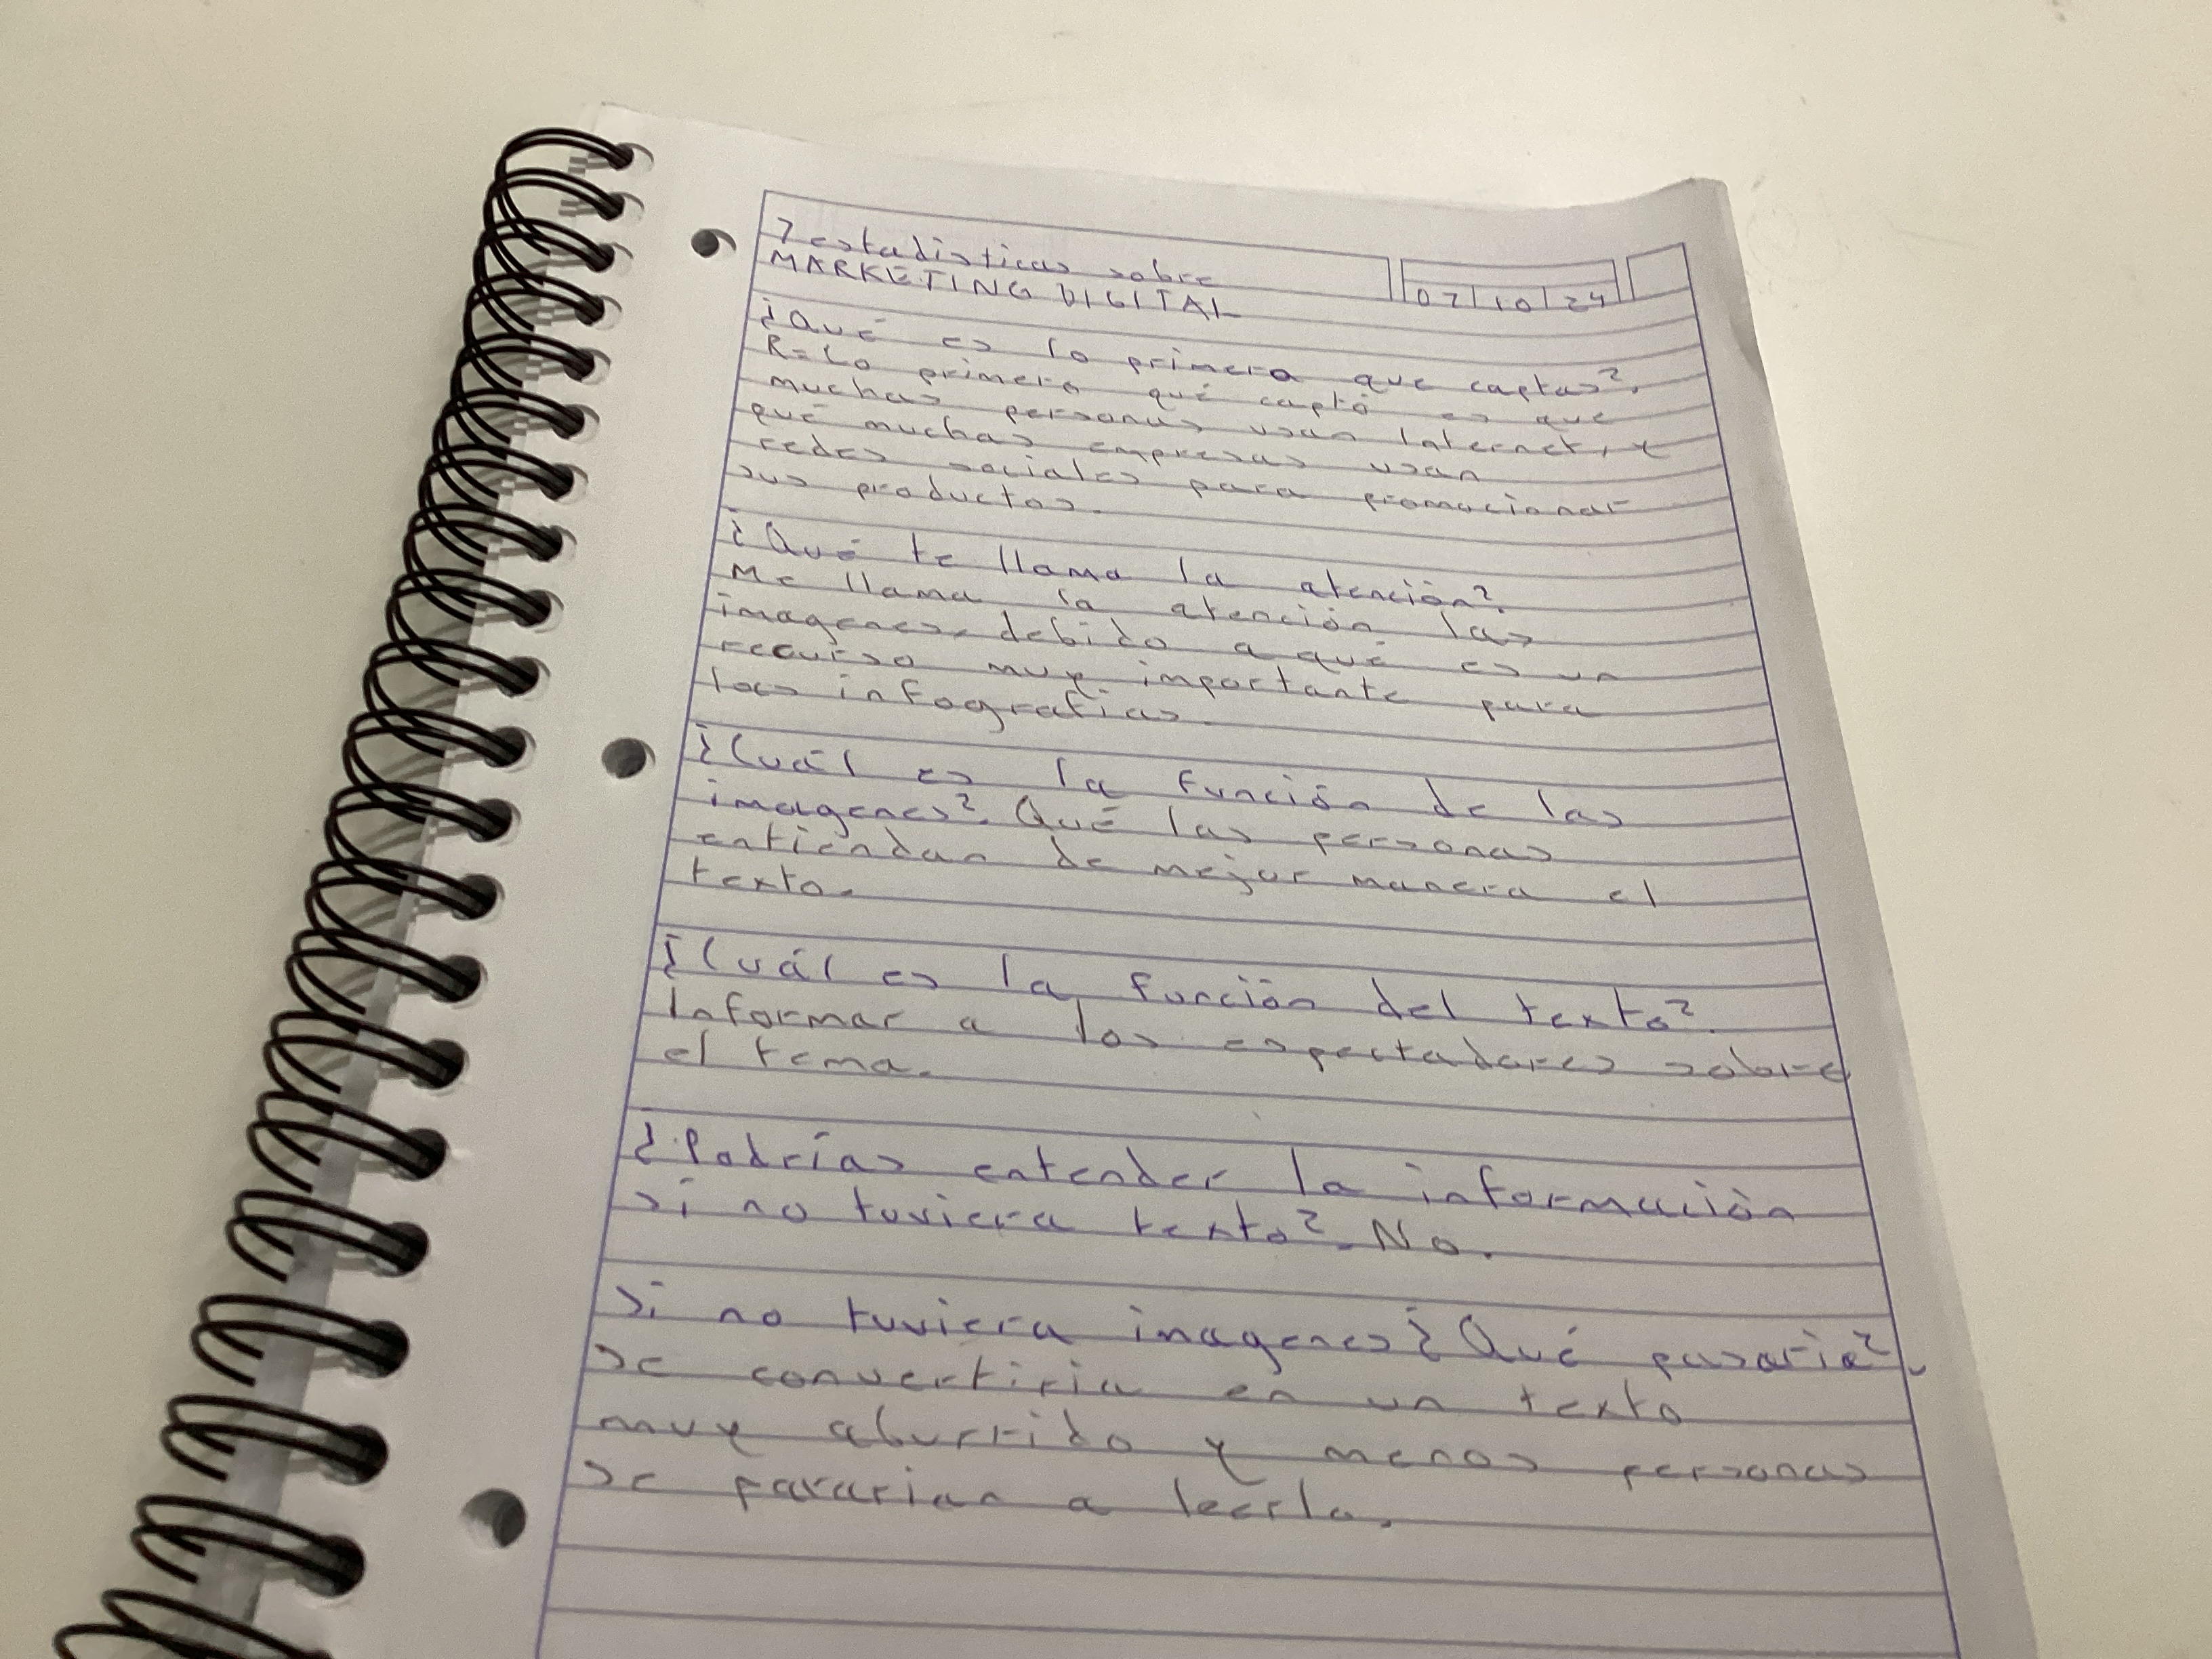 7 estadísticas sobre
MARKETING DIGITAL
07/10/24
¿Qué es lo primero que captas?.
R=Lo primero qué captó es que
muchas personas usan Internet, y
qué muchas empresas usan
redes sociales para promocionar
sus productos.
¿Qué te llama la atención?.
Me llama la atención las
imagenes, debido a qué es un
recurso muy importante para
las infografias.
¿Cuál es la función de las
imagenes?. Qué las personas
entiendan de mejor manera el
texto.
¿Cuál es la función del texto?.
Informar a los espectadores sobre
el tema.
¿Podrías entender la información
si no tuviera texto?. No.
Si no tuviera imagenes ¿Qué pasaría?.
Se convertiria en un texto
muy aburrido y menos personas
se pararian a leerlo.